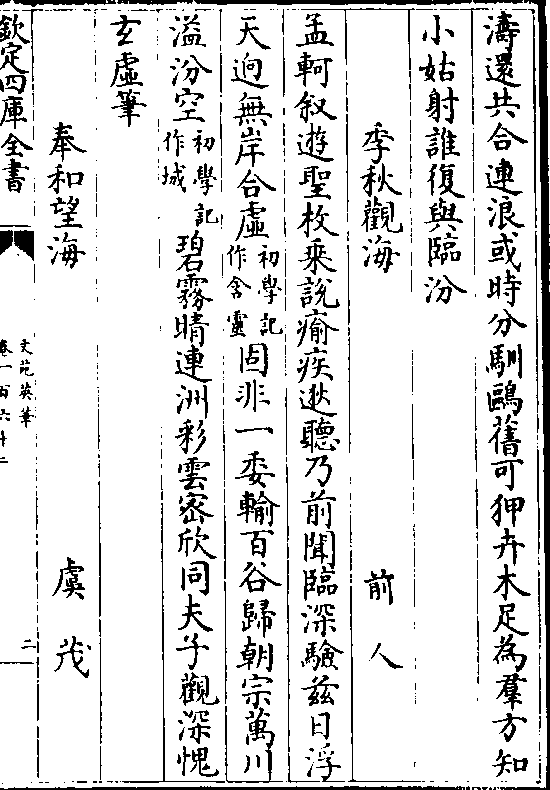 濤還共合連浪或時分馴鷗舊可狎卉木足為羣方知
小姑射誰復與臨汾
季秋觀海 前人
孟軻叙遊聖枚乘說瘉疾逖聽乃前聞臨深驗兹日浮
天迥無岸含虛初學記作含靈固非一委輸百谷歸朝宗萬川
溢汾空初學記作城碧霧晴連洲彩雲密欣同夫子觀深愧
玄虛筆
奉和望海 虞茂
欽定四庫全書
文苑英華
卷一百六十二
二